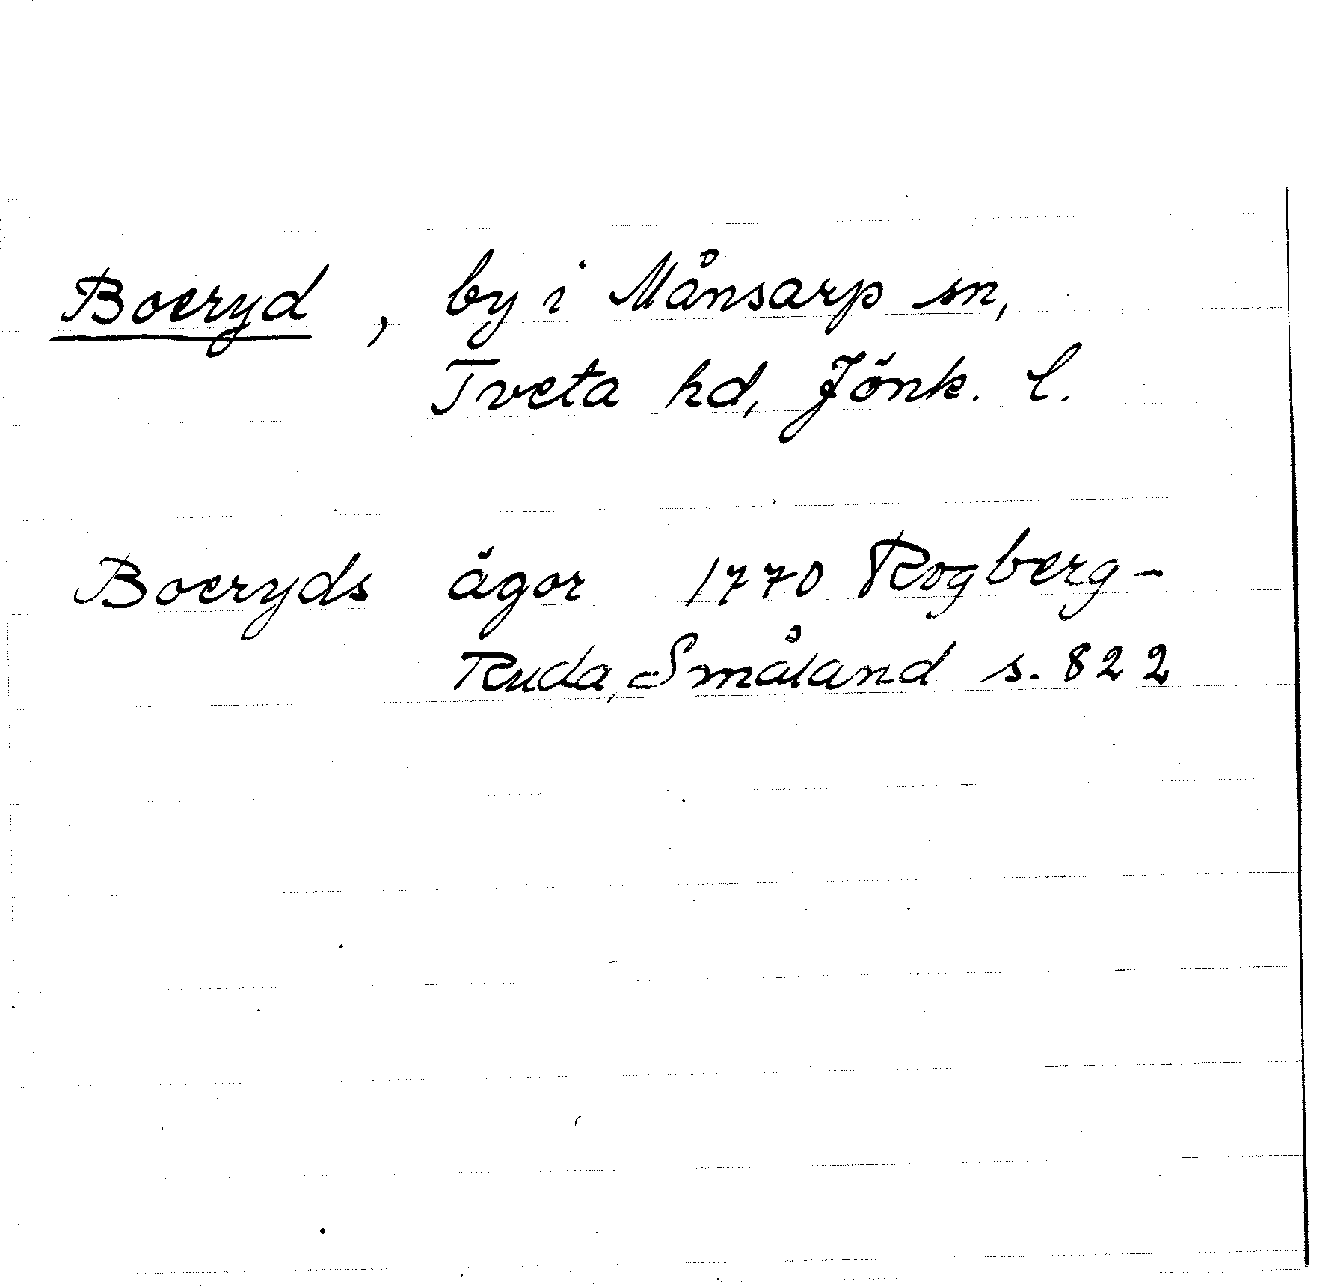 Boeryd, by i Månsarp sn,
Tveta hd, Jönk. l.
Boeryds ägor 1770 Rogberg-
Ruda, Småland s. 822